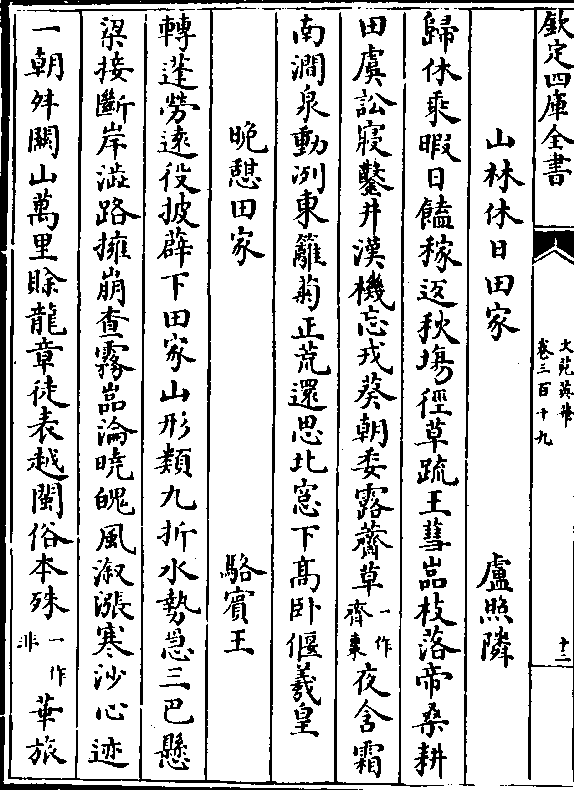 欽定四庫全書
文苑英華
卷三百十九
十二
山林休日田家
盧照隣
歸休乘暇日饁稼返秋塲徑草疏王彗嵓枝落帝桑耕
田虞訟寢鑿井漢機忘戎葵朝委露薺草一作齊棗夜含霜
南澗泉動冽東籬菊正荒還思北窓下髙卧偃羲皇
晚憇田家
駱賓王
轉蓬勞逺役披薜下田家山形類九折水勢急三巴懸
梁接斷岸澁路擁崩查霧嵓淪曉魄風溆漲寒沙心迹
一朝舛闗山萬里賒龍章徒表越閩俗本殊一作非華旅